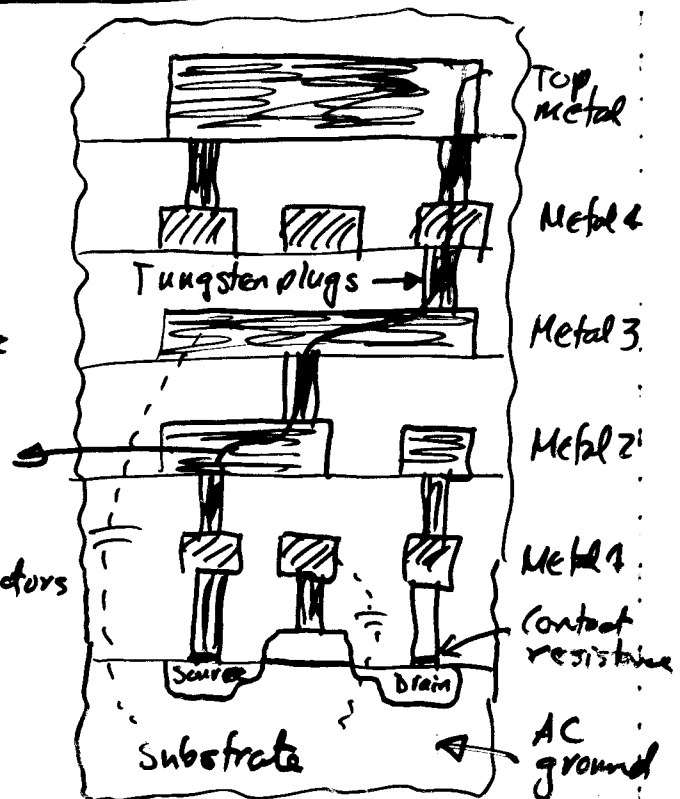 Top
metal
Metal 4
Tungsten plugs
Metal 3
Metal 2
Metal 1
Contact
resistance
Source
Drain
Substrate
AC
ground